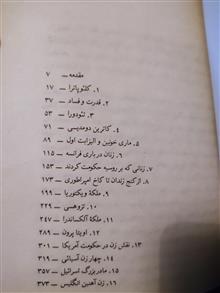 مقدمه — ۷
۱. کلئوپاترا — ۱۷
۲. قدرت و فساد — ۳۷
۳. تئودورا — ۵۳
۴. کاترین دومدیسی — ۷۱
۵. ماری خونین و الیزابت اول — ۸۹
۶. زنان درباری فرانسه — ۱۱۵
۷. زنانی که بر روسیه حکومت کردند — ۱۵۳
۸. از کنج زندان تا کاخ امپراطوری — ۱۷۳
۹. ملکهٔ ویکتوریا — ۱۹۹
۱۰. تزوهسی — ۲۲۹
۱۱. ملکهٔ آلکساندرا — ۲۴۷
۱۲. اویتا پرون — ۲۸۹
۱۳. نقش زن در حکومت آمریکا — ۳۰۱
۱۴. چهار زن آسیائی — ۳۱۹
۱۵. مادر بزرگ اسرائیل — ۳۵۷
۱۶. زن آهنین انگلیس — ۳۷۳